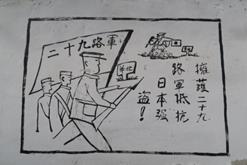 二十九路軍
华北
擁護二十九
路軍抵抗
日本强
盗！